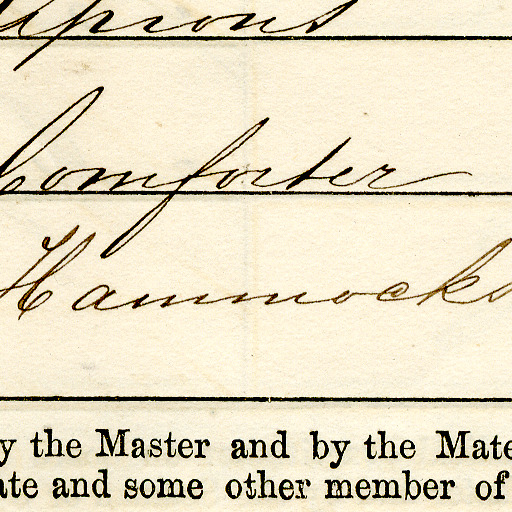 Aprons
Comforter
Hammocks
y the Master and by the Mate
ate and some other member of